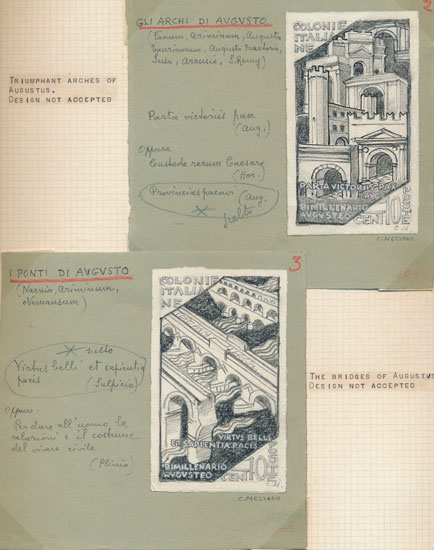 GLI ARCHI DI AUGUSTO
2
(Fanum, Ariminum, Augusta
Taurinorum, Augusta Praetoria,
Susa, S. Remy)
TRIUMPHANT ARCHES OF
AUGUSTUS.
DESIGN NOT ACCEPTED
Parta victoriis pax
(Aug.)
Oppure
Custode rerum Caesare
(Hor.)
Provincias pacavi (Aug.
scelto
COLONIE
ITALIA
NE
PARTA VICTORIIS PAX
BIMILLENARIO
AVGVSTEO
CENT 10
C. MEZZANA
I PONTI DI AUGUSTO
3
(Narnia, Ariminum,
Nemausum)
scelto
Virtus belli et sapientia
pacis
(Sulpicio)
Oppure:
Per dare all'uomo le
relazioni e il costume
del vivere civile
(Plinio)
COLONIE
ITALIA
NE
VIRTVS BELLI
ET SAPIENTIA PACIS
BIMILLENARIO
AVGVSTEO
CENT 10
C. MEZZANA
THE BRIDGES OF AUGUSTUS
DESIGN NOT ACCEPTED